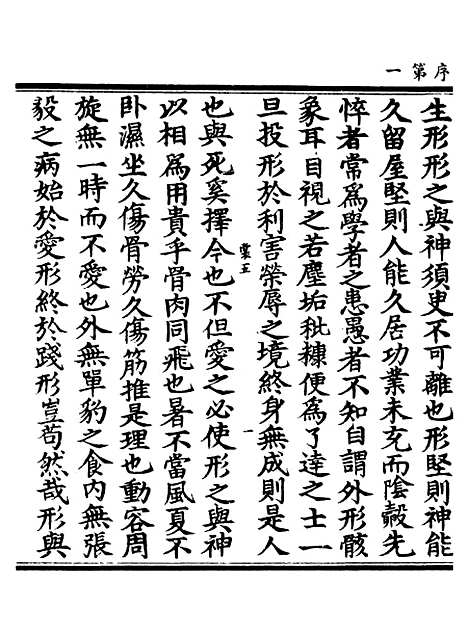 序第一
生形形之與神須臾不可離也形堅則神能
久留屋堅則人能久居功業未充而陰殽先
悴者常為學者之患愚者不知自謂外形骸
象耳目視之若塵垢秕糠便為了達之士一
旦投形於利害榮辱之境終身無成則是人
棠五
一
也與死奚擇今也不但愛之必使形之與神
以相為用貴乎骨肉同飛也暑不當風夏不
卧濕坐久傷骨勞久傷筋推是理也動容周
旋無一時而不愛也外無單豹之食内無張
毅之病始於愛形終於踐形豈苟然哉形與